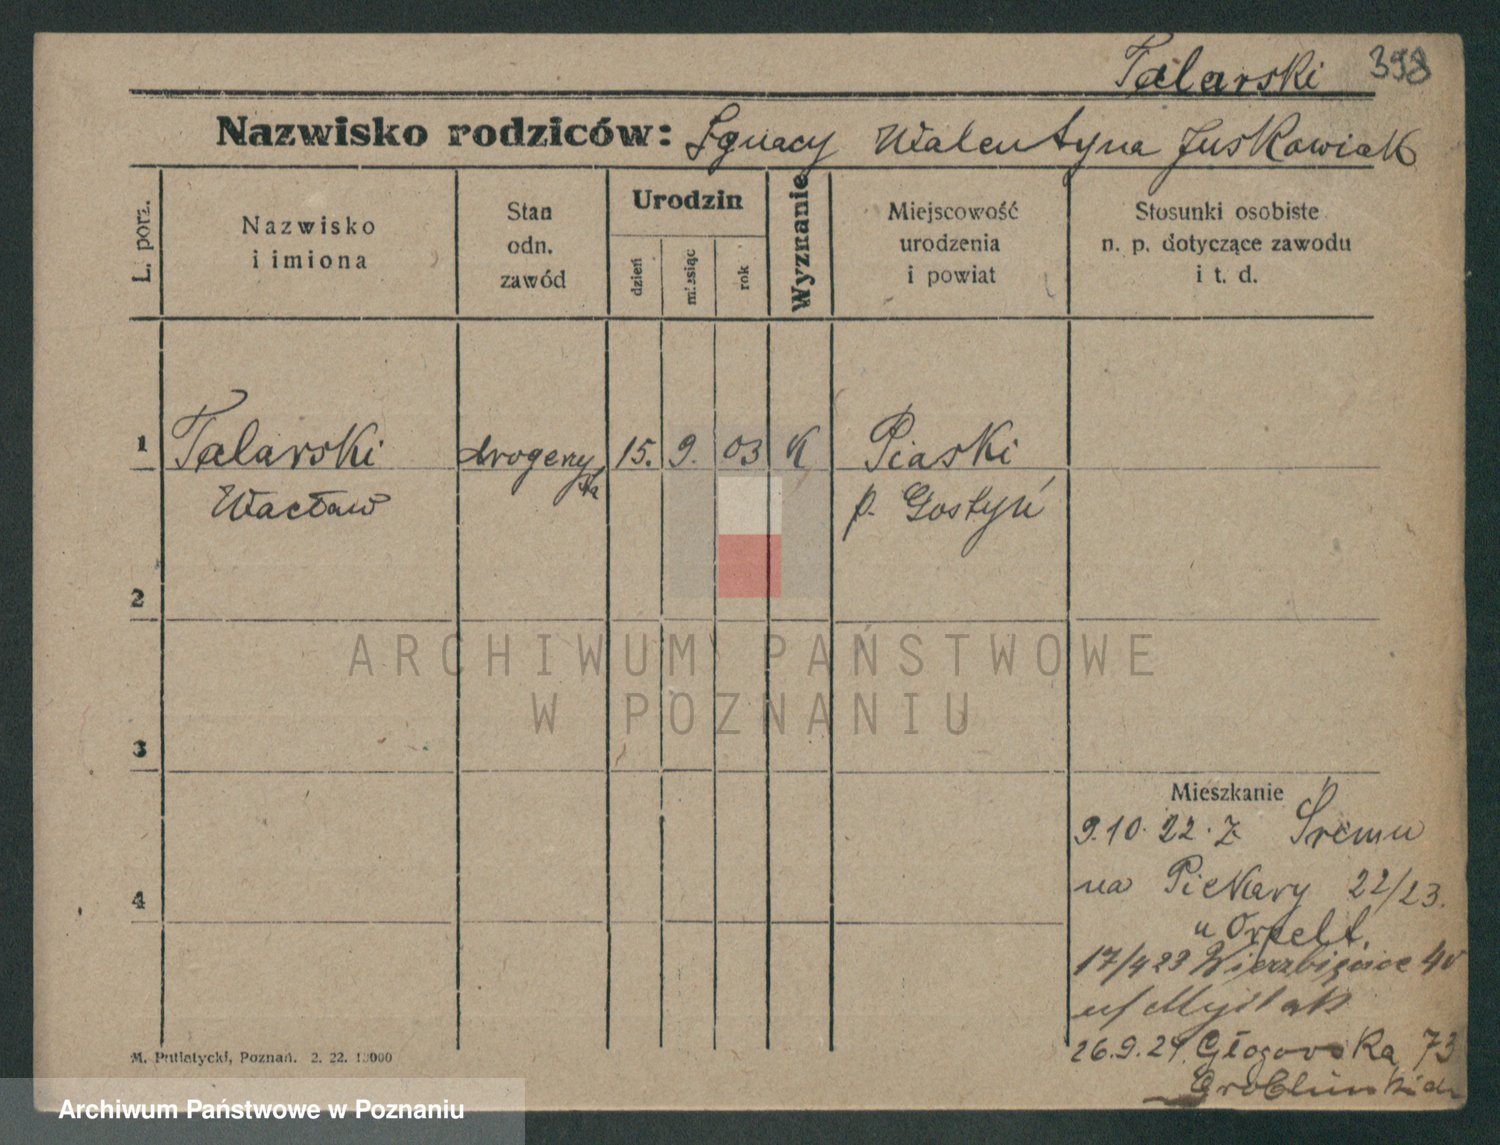 Talarski 398
Nazwisko rodziców: Ignacy Walentyna Juskowiak
L. porz.
Nazwisko
i imiona
Stan
odn.
zawód
Urodzin
dzień
miesiąc
rok
Wyznanie
Miejscowość
urodzenia
i powiat
Stosunki osobiste
n. p. dotyczące zawodu
i t. d.
1 Talarski drogery 15. 9. 03 K Piaski
Wacław p. Gostyń
2
3
4
Mieszkanie
9.10.22. z Śremu
na Piekary 22/23.
u Orpelt.
17/4 23 Wierzbięcice
u/ Myślak
26.9.24. Głogowska 73
M. Putiatycki, Poznań. 2. 22. 10000
ARCHIWUM PAŃSTWOWE
W POZNANIU
Archiwum Państwowe w Poznaniu